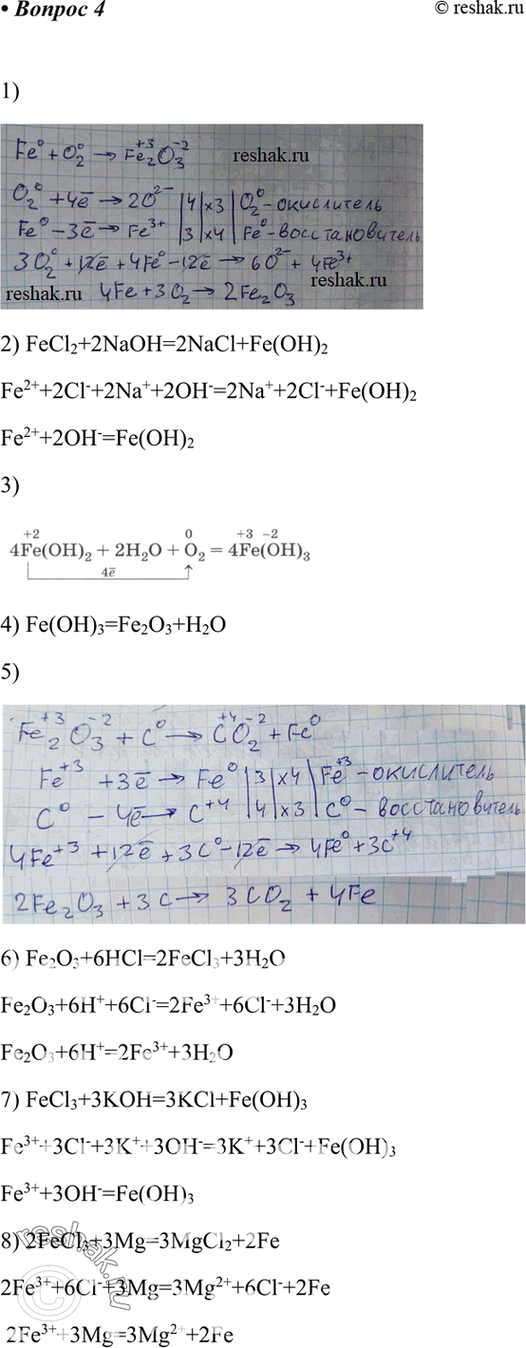 • Вопрос 4
© reshak.ru
1)
Fe⁰ + O₂⁰ → Fe₂⁺³O₃⁻²
reshak.ru
O₂⁰ + 4ē → 2O²⁻ |4|×3| O₂⁰ - окислитель
Fe⁰ - 3ē → Fe³⁺ |3|×4| Fe⁰ - восстановитель
3O₂⁰ + 12ē + 4Fe⁰ - 12ē → 6O²⁻ + 4Fe³⁺
reshak.ru
reshak.ru
4Fe + 3O₂ → 2Fe₂O₃
2) FeCl₂+2NaOH=2NaCl+Fe(OH)₂
Fe²⁺+2Cl⁻+2Na⁺+2OH⁻=2Na⁺+2Cl⁻+Fe(OH)₂
Fe²⁺+2OH⁻=Fe(OH)₂
3)
+2 0 +3 -2
4Fe(OH)₂ + 2H₂O + O₂ = 4Fe(OH)₃
4ē
4) Fe(OH)₃=Fe₂O₃+H₂O
5)
Fe₂⁺³O₃⁻² + C⁰ → C⁺⁴O₂⁻² + Fe⁰
Fe⁺³ + 3ē → Fe⁰ |3|×4| Fe⁺³ - окислитель
C⁰ - 4ē → C⁺⁴ |4|×3| C⁰ - восстановитель
4Fe⁺³ + 12ē + 3C⁰ - 12ē → 4Fe⁰ + 3C⁺⁴
2Fe₂O₃ + 3C → 3CO₂ + 4Fe
6) Fe₂O₃+6HCl=2FeCl₃+3H₂O
Fe₂O₃+6H⁺+6Cl⁻=2Fe³⁺+6Cl⁻+3H₂O
Fe₂O₃+6H⁺=2Fe³⁺+3H₂O
7) FeCl₃+3KOH=3KCl+Fe(OH)₃
Fe³⁺+3Cl⁻+3K⁺+3OH⁻=3K⁺+3Cl⁻+Fe(OH)₃
Fe³⁺+3OH⁻=Fe(OH)₃
8) 2FeCl₃+3Mg=3MgCl₂+2Fe
2Fe³⁺+6Cl⁻+3Mg=3Mg²⁺+6Cl⁻+2Fe
2Fe³⁺+3Mg=3Mg²⁺+2Fe
© reshak.ru